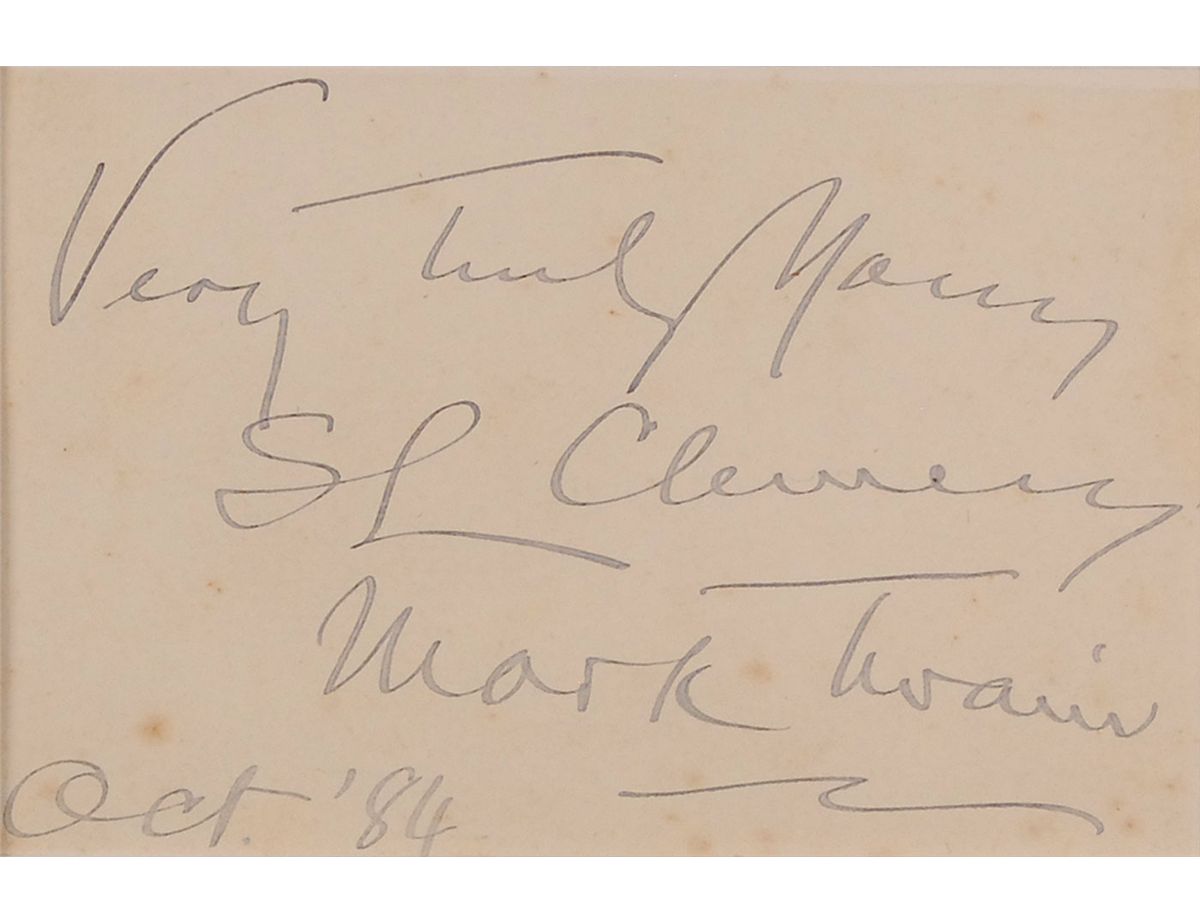 Very Truly Yours
SL Clemens
Mark Twain
Oct. '84